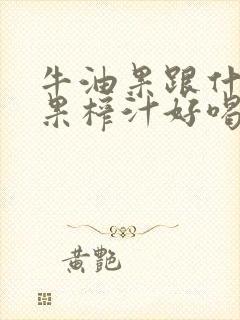 牛油果跟什
果榨汁好喝
黄艷